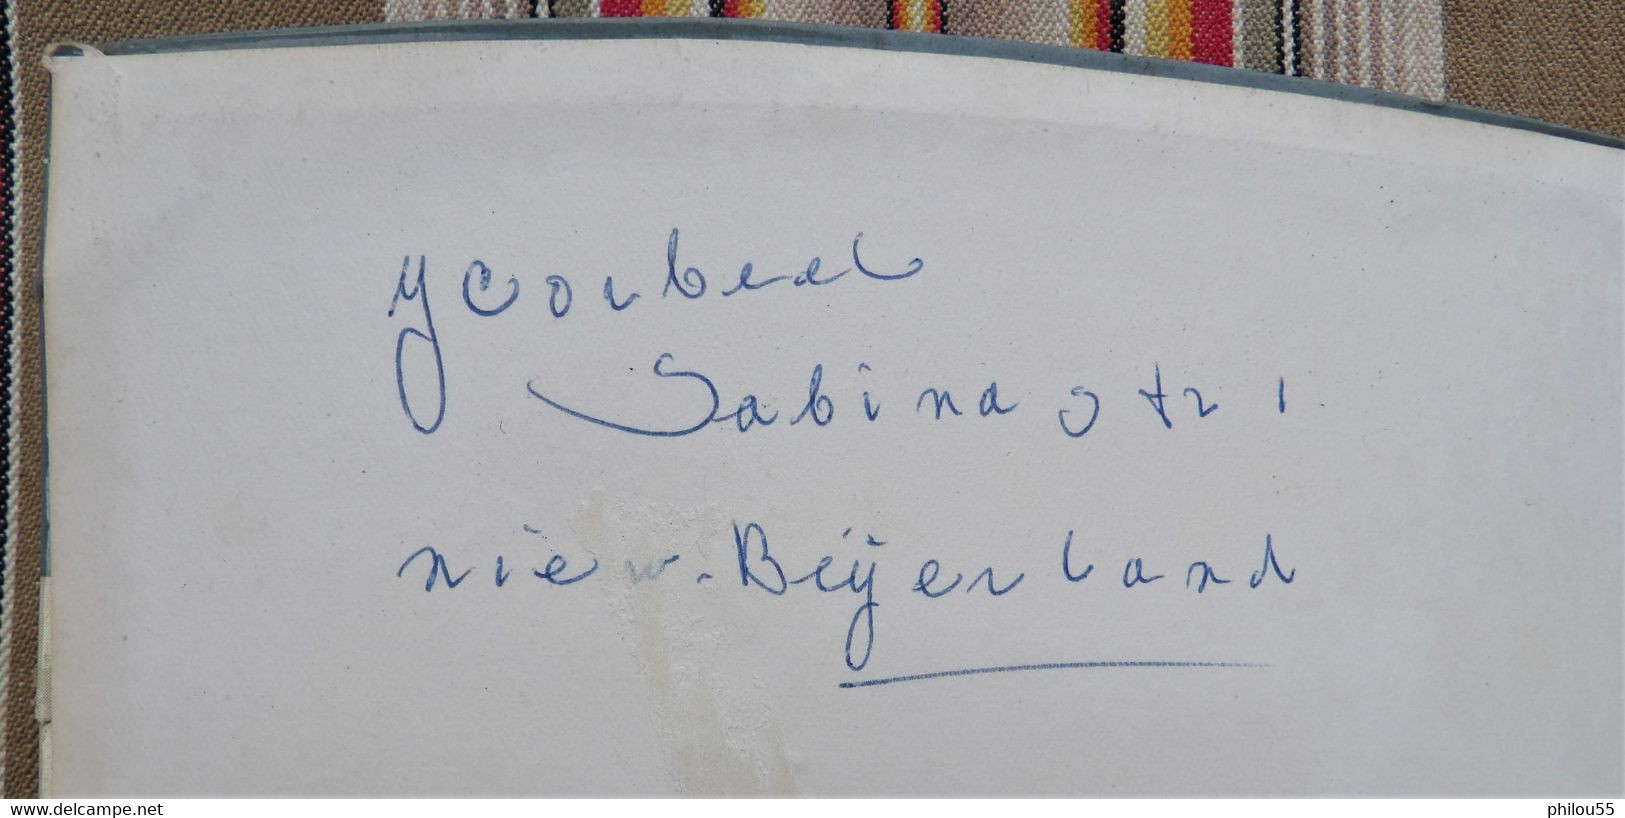 Y Corbeel
Sabinastr 1
niew. Beijerland
www.delcampe.net
philou55